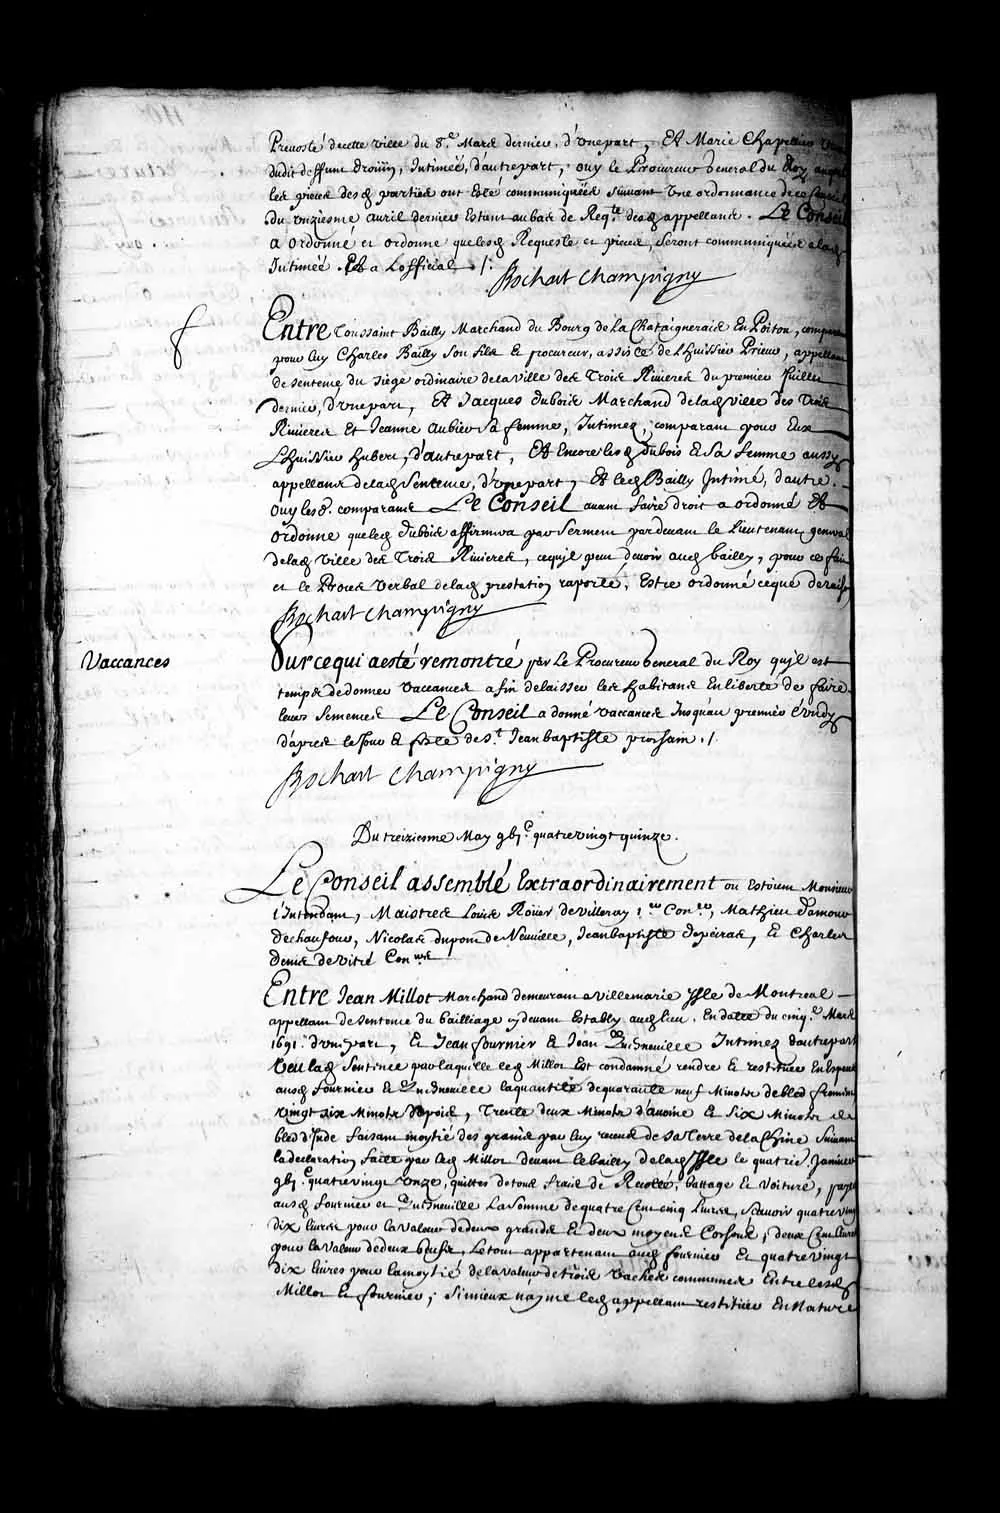 Prevosté decette ville du 8.e Mars dernier, d'Unepart, Et Marie Chapellier
dudit deffunt Droüin, Intimée, d'autrepart; ouy le Procureur General du Roy auquel
les pieces desd parties ont Esté communiquées suivant Une ordonnance de ce Conseil
du unziesme avril dernier Estant aubas de Req.te desd appellans. Le Conseil
a ordonné et ordonne quelesd Requeste et pieces, seront communiquées alad
Intimée. Et a Lofficial ./.
Bochart Champigny
Entre Toussaint Bailly Marchand du Bourg de La Chataigneraie En Poitou, comparant
pour luy Charles Bailly son fils Et procureur, assisté de L'huissier Prieur, appellant
de sentence du siege ordinaire dela Ville des Trois Rivieres du premier Juillet
dernier, d'Unepart, Et Jacques dubois Marchand delad ville des trois
Rivieres Et Jeanne aubier sa femme, Intimez, comparant pour Eux
L'huissier hubert, d'autrepart, Et Encore lesd dubois Et sa femme aussy
appellans delad Sentence, d'Unepart, Et led Bailly Intimé, d'autre.
Ouy lesd. comparans Le Conseil avant faire droit a ordonné Et
ordonne queled dubois affirmera par serment pardevant le Lieutenant general
delad Ville des Trois Rivieres, cequil peut devoir aud bailly, pour ce fait
et le Procés Verbal delad prestation raporté, Estre ordonné ceque de raison
Bochart Champigny
Vaccances
Surcequi aesté remontré par Le Procureur General du Roy quil est
temps dedonner Vaccances afin delaisser les habitans En liberté de faire
leurs semences Le Conseil a donné Vaccances Jusqu'au premier Lundy
d'aprés le Jour & feste de S.t Jean baptiste prochain ./.
Bochart Champigny
Du treiziesme May gbj.c quatrevingt quinze.
Le Conseil assemblé Extraordinairement ou Estoient Monsieur
l'Intendant, Maistres Louis Roüer de Villeray 1.er Con.er, Mathieu Damours
Deschaufour, Nicolas dupont de Neuville, Jean baptiste depeiras, Et Charles
Denis de Vitré Con.ers
Entre Jean Millot Marchand demeurant a Villemarie Isle de Montreal
appellant de Sentence du bailliage cydevant Estably aud lieu, En datte du cinq.e Mars
1691. d'Unepart, Et Jean fournier Et Jean Quesneville Intimez dautrepart
Veu lad Sentence par laquelle led Millot Est condamné rendre Et restituer En Espece
ausd fournier Et Quesneville laquantité dequarante neuf Minots debled froment
vingt six Minots depois, Trente deux Minots d'avoine Et six Minots de
bled d'Inde faisant moytié des grains par luy receus de sa terre dela Chine suivant
la declaration faite par led Millot devant le bailly delad Isle le quatrie. Janvier
gbj.c quatrevingt Unze, quittes de tous fraits de Recolte, battage Et Voiture, payer
ausd fournier et Quesneville La somme dequatre Cent cinq livres, scavoir quatrevingt
dix livres pour la valeur dedeux grands Et deux moyens Cochons, deux Cent livres
pour la valeur dedeux boeufs, Le tout appartenant aud fournier Et quatrevingt
dix livres pour lamoytié dela valeur detrois Vaches communes Entre lesd
Millot Et fournier, si mieux n'ayme led appellant restituer En Nature